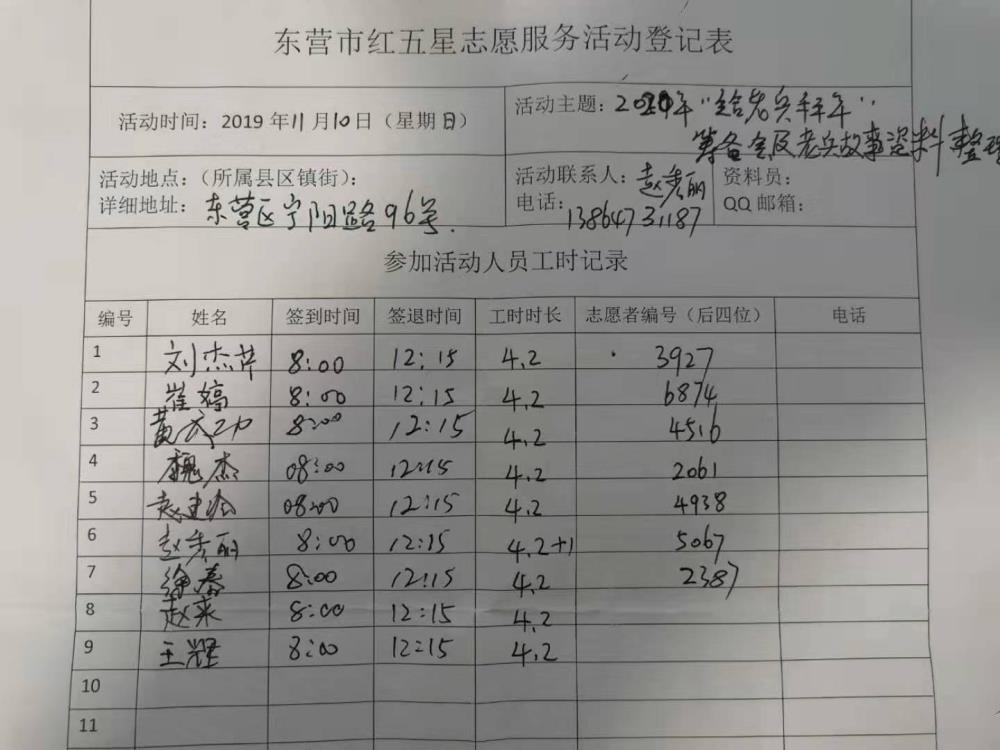 东营市红五星志愿服务活动登记表
活动时间：2019年11月10日（星期日）
活动主题：2020年"给老兵拜年"
筹备会及老兵故事资料整理
活动地点：（所属县区镇街）：
详细地址：东营区宁阳路96号.
活动联系人：赵秀丽
电话：13864731187
资料员：
QQ邮箱：
参加活动人员工时记录
编号 姓名 签到时间 签退时间 工时时长 志愿者编号（后四位） 电话
1 刘杰芹 8:00 12:15 4.2 3927
2 崔婷 8:00 12:15 4.2 6874
3 黄成功 8:00 12:15 4.2 4516
4 魏杰 08:00 12:15 4.2 2061
5 08:00 12:15 4.2 4938
6 赵秀丽 8:00 12:15 4.2+1 5067
7 徐春 8:00 12:15 4.2 2387
8 赵来 8:00 12:15 4.2
9 王 8:00 12:15 4.2
10
11